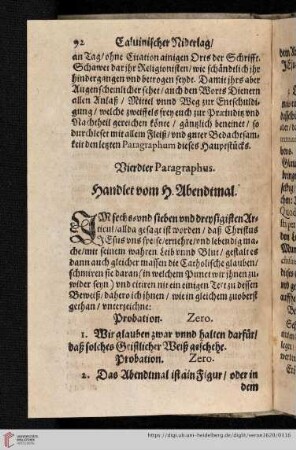 92 Caluinischer Niderlag/
an Tag/ ohne Citation ainigen Orts der Schrifft.
Schawet dar ihr Religionisten/ wie schändtlich jhr
hindergangen vnd betrogen seydt. Damit ihrs aber
Augenscheinlicher sehet/ auch den Worts Dienern
allen Anlaß/ Mittel vnnd Weg zur Entschuldi-
gung/ welche zweiffels frey euch zur Præiuditz vnd
Nachtheil gereichen könte/ gäntzlich benemet/ so
durchleset mit allem Fleiß/ vnd guter Bedachtsam-
keit den letzten Paragraphum dieses Hauptstücks.
Vierdter Paragraphus.
Handlet vom H. Abendtmal.
IM sechs- vnd sieben vnd dreyssigisten Ar-
ticul/ allda gesagt ist worden/ daß Christus
JEsus vns speise/ ernehre/ vnd lebendig ma-
che/ mit seinem wahren Leib vnnd Blut/ gestaltes
dann auch gleicher massen die Catholische glauben/
schmiren sie daran/ (in welchem Punct wir ihnen zu-
wider seyn) vnd citiren nit ein einigen Text zu dessen
Beweiß/ dahero ich ihnen/ wie in gleichem zuoberst
gethan/ vnterzeichne:
Probation. Zero.
1. Wir glauben zwar vnnd halten darfür/
daß solches Geistlicher Weiß geschehe.
Probation. Zero.
2. Das Abendtmal ist ain Figur/ oder in
dem
https://digi.ub.uni-heidelberg.de/diglit/weiss1620/0116